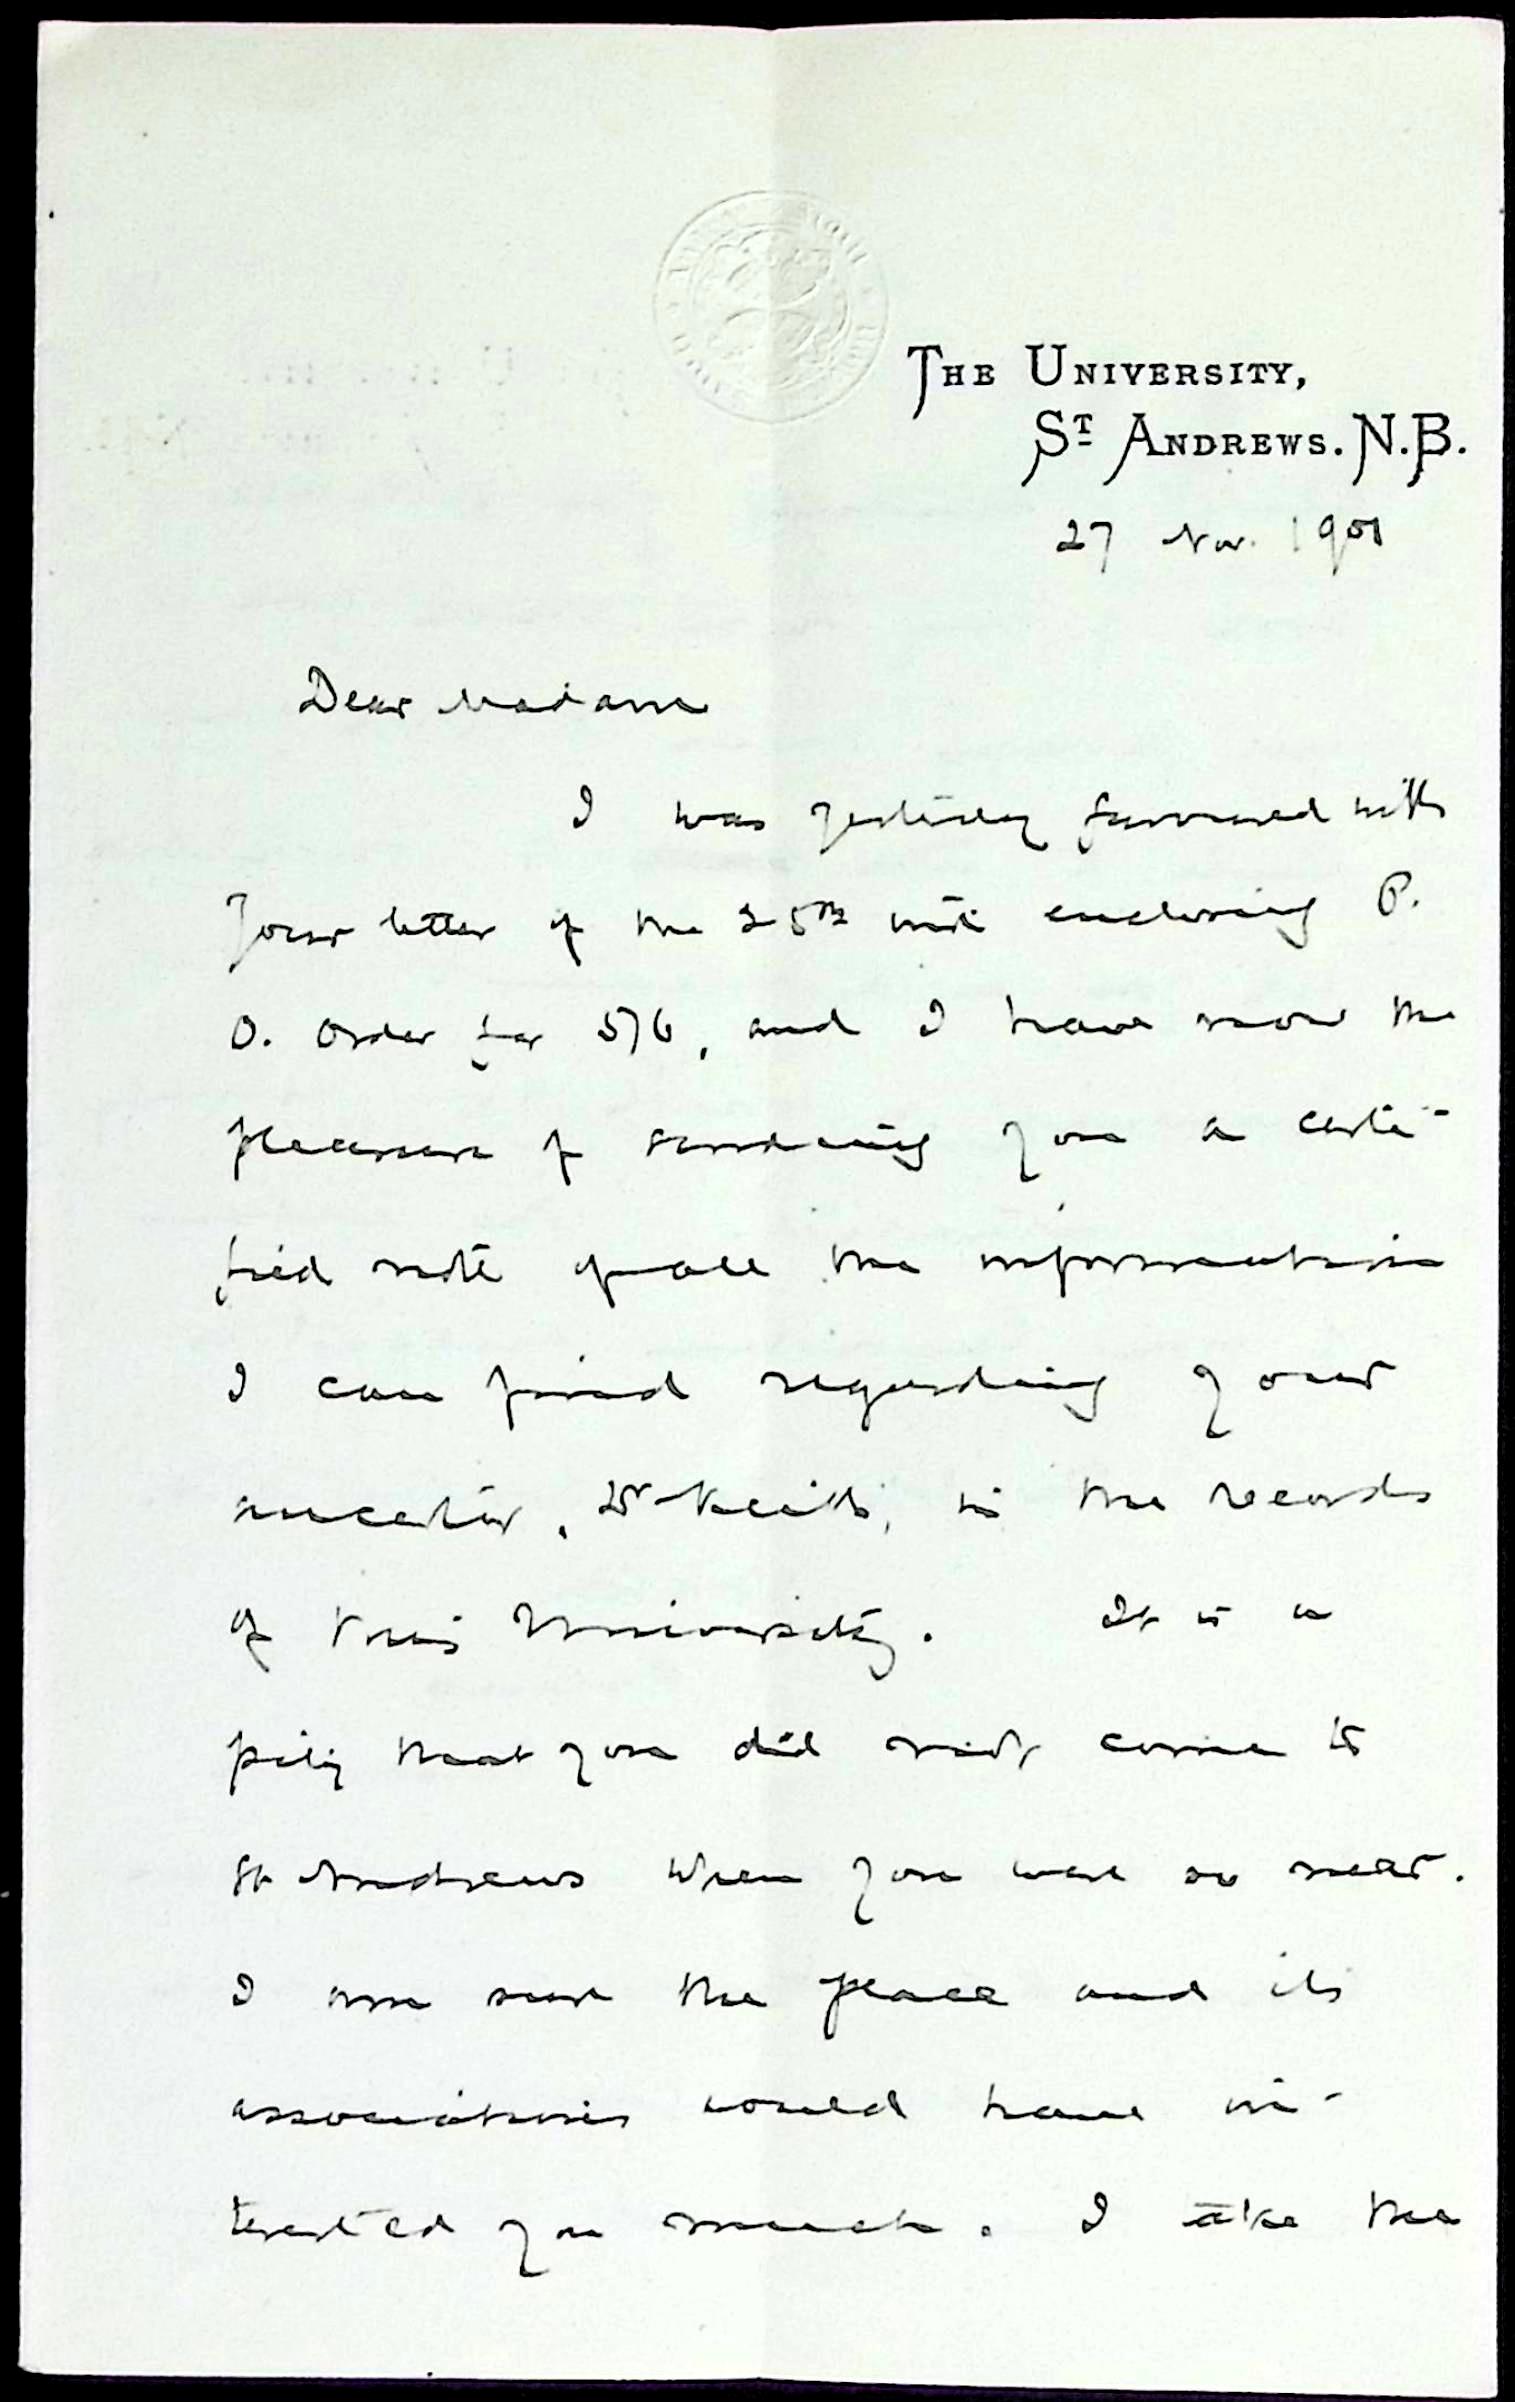 THE UNIVERSITY,
ST ANDREWS. N.B.
27 Nov. 1901
Dear Madam
I was yesterday favoured with
your letter of the 25th inst enclosing P.
O. Order for 5/6, and I have now the
pleasure of sending you a certi-
fied note of all the information
I can find regarding your
ancestor, Dr Keith, in the records
of this University. It is a
pity that you did not come to
St Andrews when you were so near.
I am sure the place and its
associations would have in-
terested you much. I take the